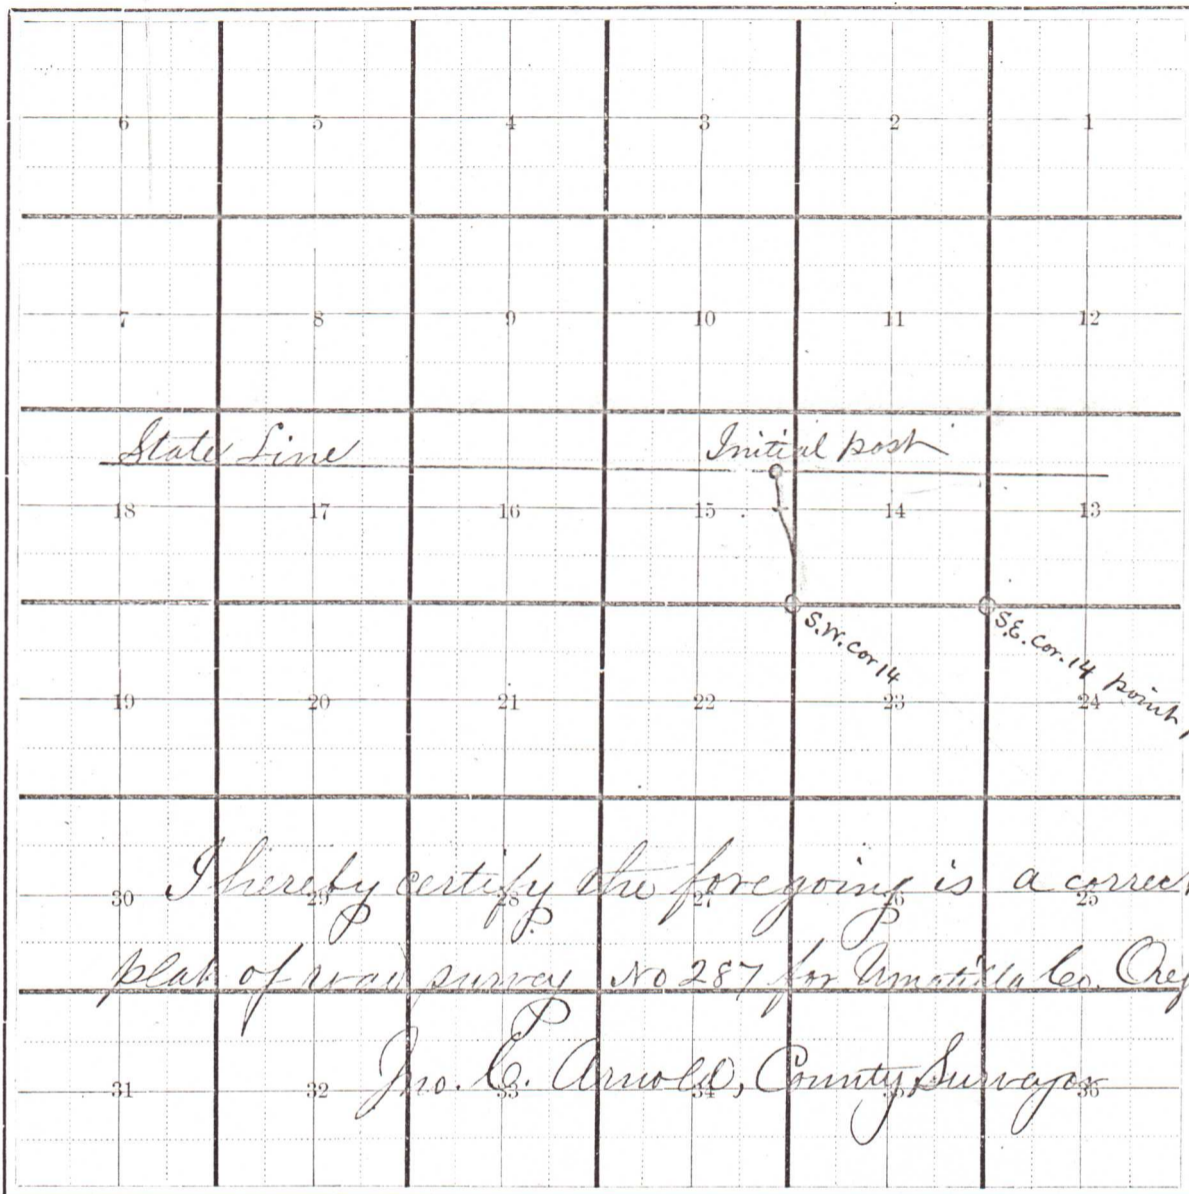 6 5 4 3 2 1
7 8 9 10 11 12
State Line
Initial post
18 17 16 15 14 13
S.W. cor 14
S.E. cor. 14 point
19 20 21 22 23 24
I hereby certify the foregoing is a correct
30 29 28 27 26 25
plat of road survey No 287 for Umatilla Co. Oreg
Jno. C. Arnold, County Surveyor
31 32 33 34 35 36